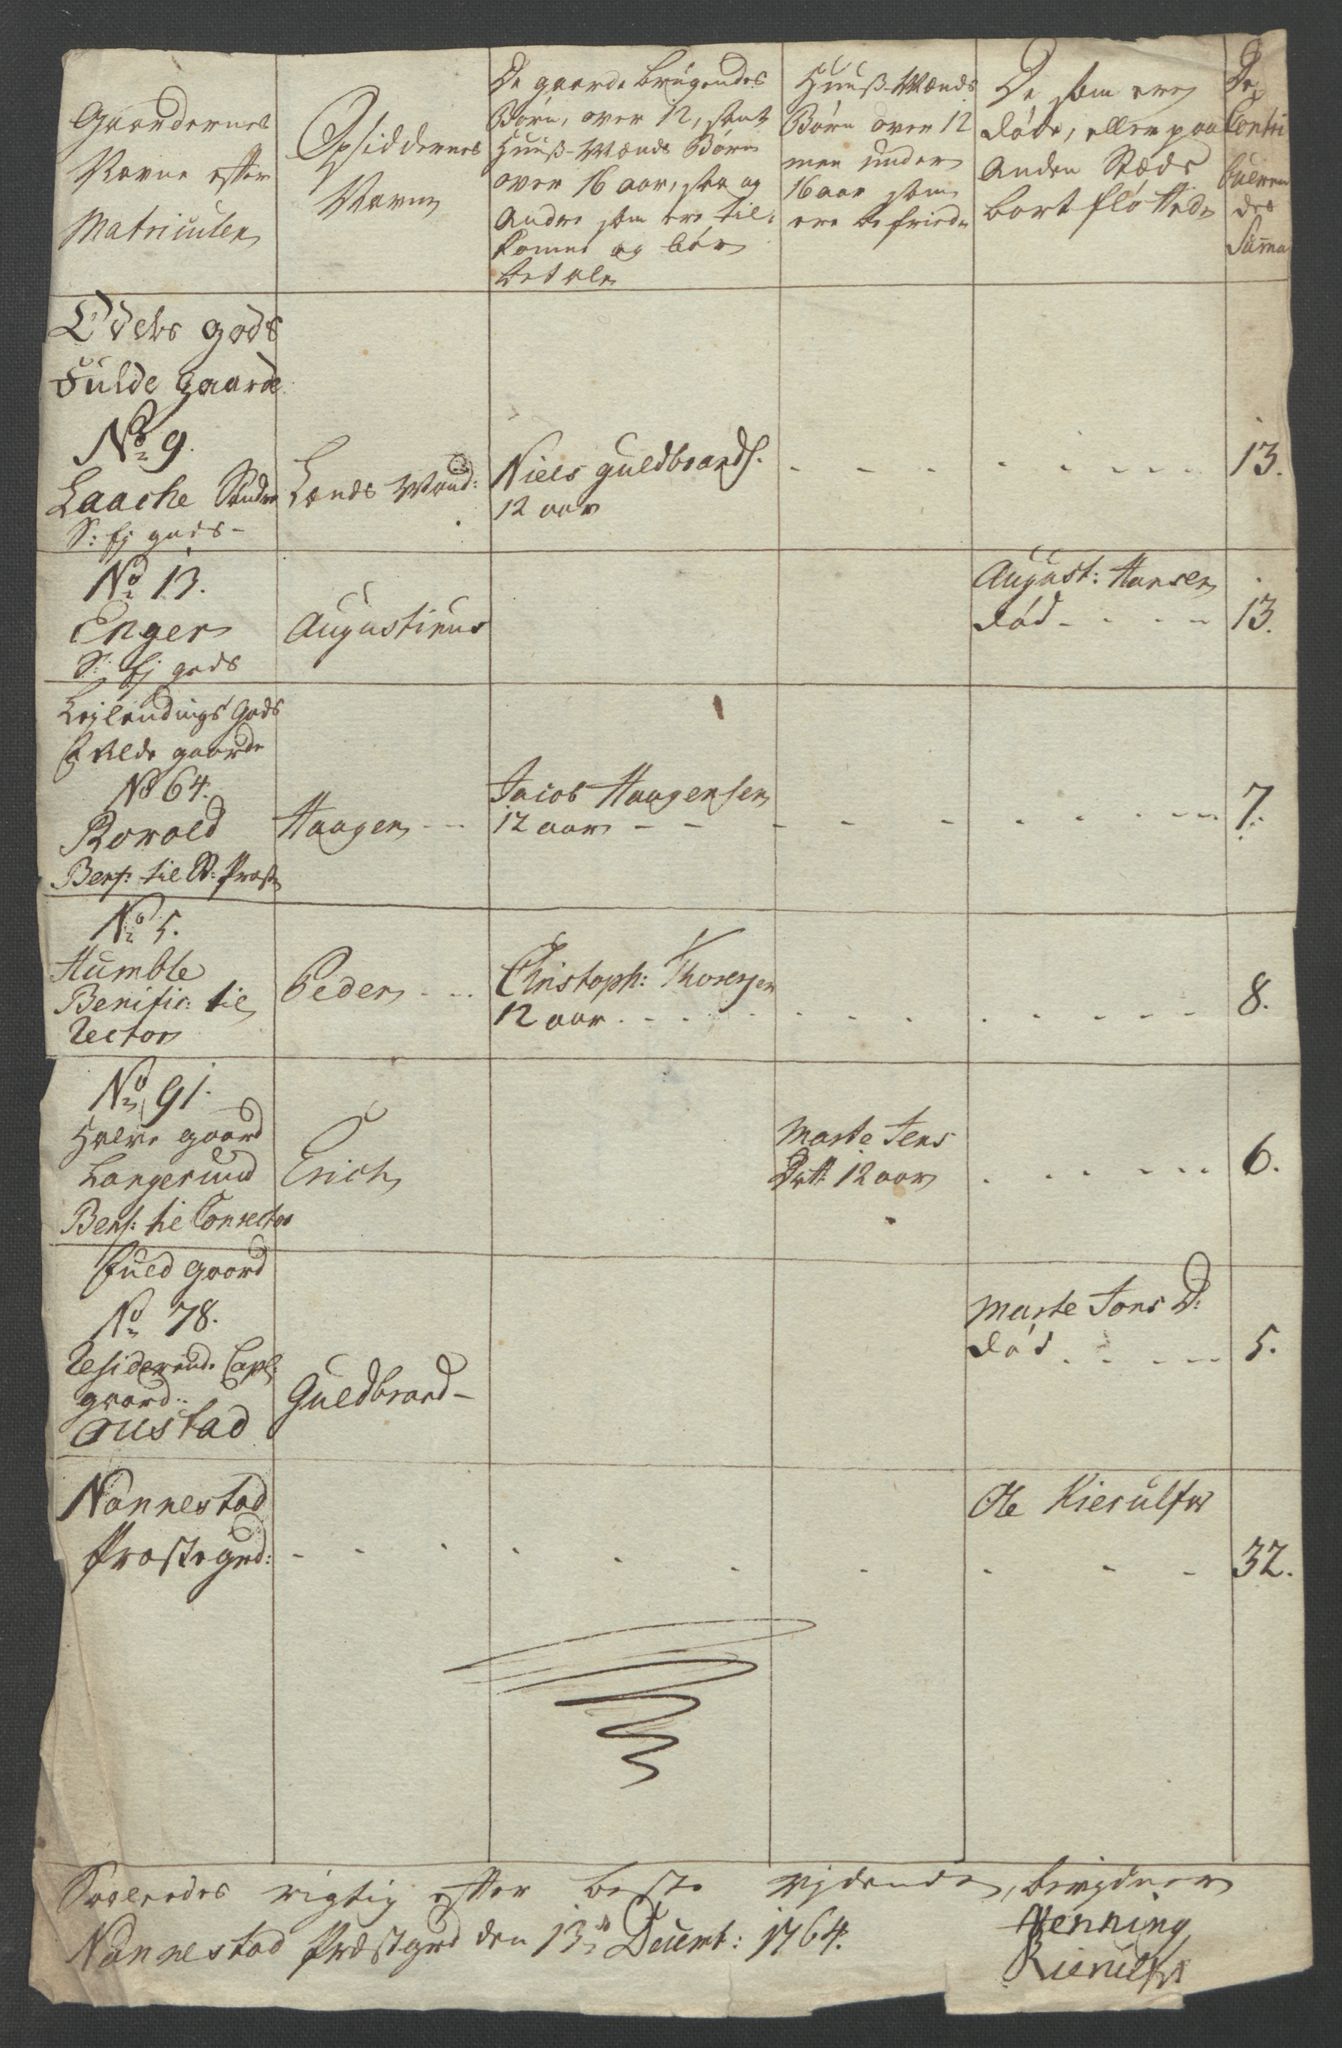 Gaardernes
Navne efter
Matriculen
Opsiddernes
Navne
De gaarde brugendes
Børn, over 12, samt
Huus-Mænds Børn
over 16 aar, saa og
Andre som ere til-
komne og bør
betale
Huus-Mænds
Børn over 12
men under
16 aar som
ere befriede
De som ere
døde, eller paa
Anden Stæds
bortfløttede
De
Contri
bueren
des
Summa
Odels gods
Fulde gaarde
No 9.
Laache Søndre
S: Ej gods -
Lænds Mand:
Niels Guldbrands.
12 aar
13.
No 13.
Enger
S: Ej gods
Augustinus
August: Hansen
død
13.
Lejlendings Gods
Fulde gaarde
No 64.
Rovold
Benf: til S: Præst
Haagen
Jacob Haagensen
12 aar
7.
No 5.
Humble
Benific: til
Rector
Peder
Christoph: Thoresen
12 aar
8.
No 91.
Halve gaard
Langerud
Benf: til Conrector
Erich
Marte Jens
Datt: 12 aar
6.
Fuld gaard
No 78.
Residerende Capl:
gaard
Oustad
Guldbrand
Marte Jons D:
død
5.
Nannestad
Præstegrd:
Ole Kierulf
32.
Saaledes rigtig efter beste vidende, bevidner
Nannestad Præstgrd den 13de Decemb: 1764.
Henning
Kierulf